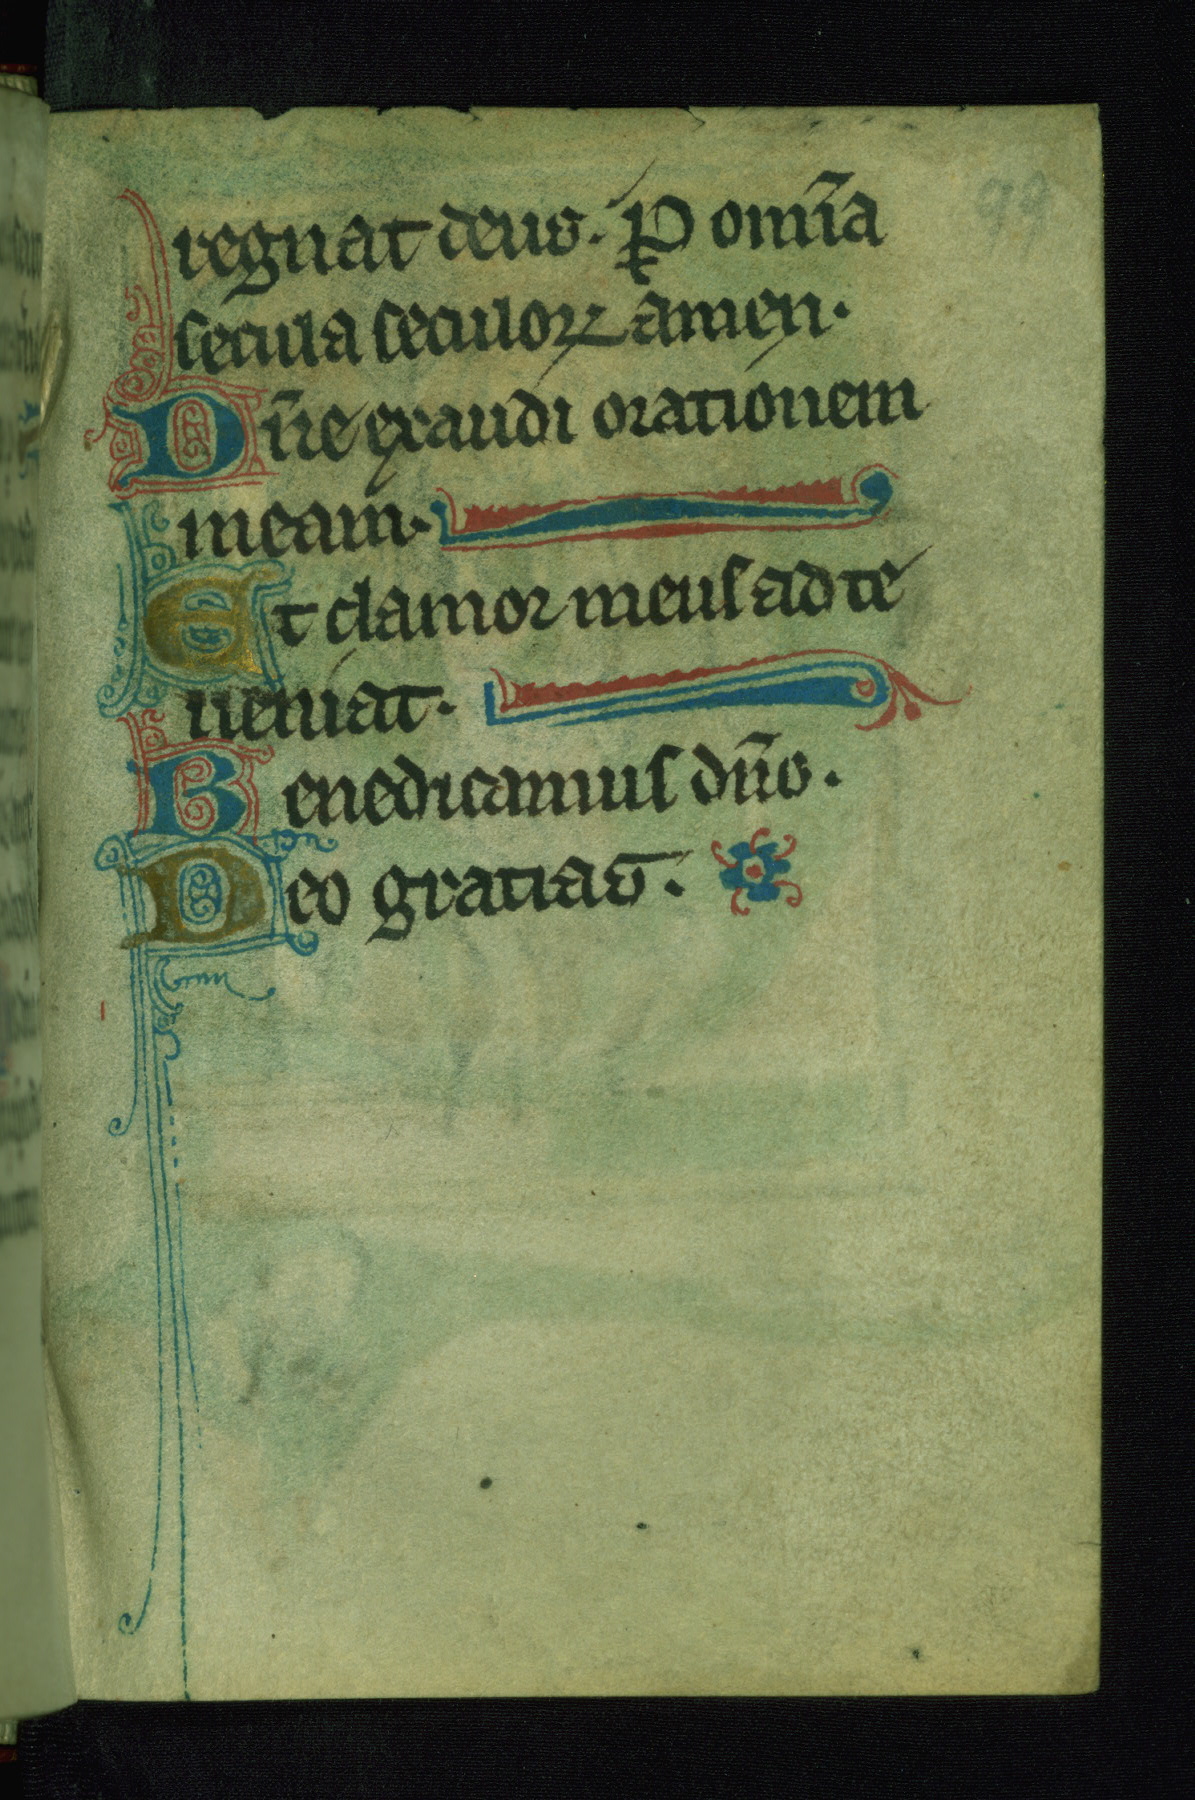 99
regnat deus. P̲ om̅ia
secula seculoꝝ amen.
Dn̅e exaudi orationem
meam.
Et clamor meus ad te
ueniat.
Benedicamus dn̅o.
Deo gratias.